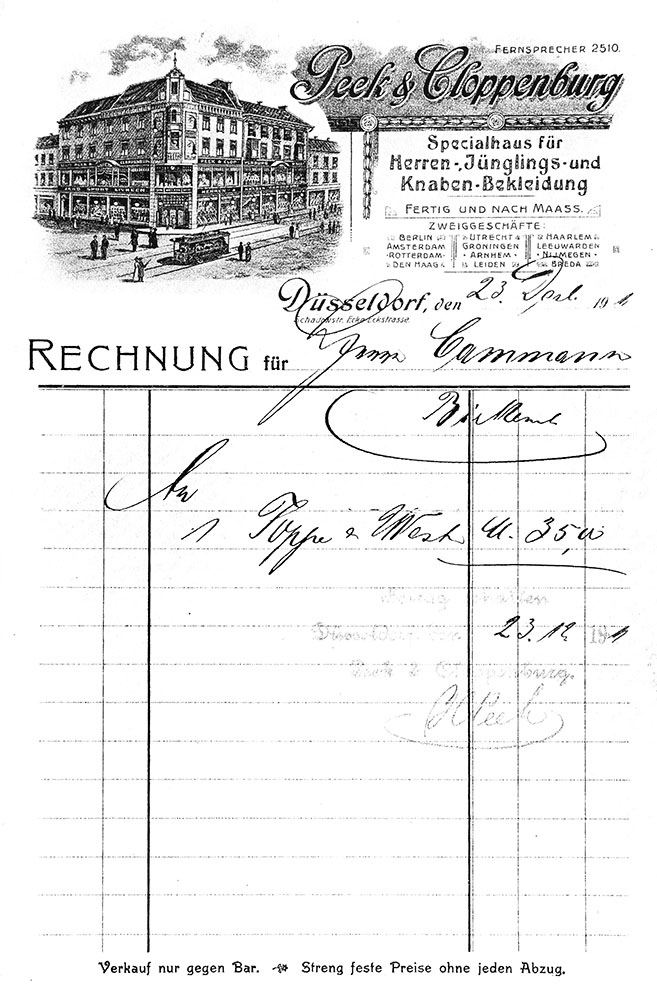 FERNSPRECHER 2510.
Peek & Cloppenburg
Specialhaus für
Herren-, Jünglings- und
Knaben-Bekleidung
FERTIG UND NACH MAASS.
ZWEIGGESCHÄFTE:
BERLIN UTRECHT HAARLEM
AMSTERDAM GRONINGEN LEEUWARDEN
ROTTERDAM ARNHEM NIJMEGEN
DEN HAAG LEIDEN BREDA
Düsseldorf, den 23. 19
Schadowstr. Ecke Eckstrasse.
RECHNUNG für Herrn Cammann
An
1 Joppe & West M. 35,00
Düsseldorf, den 23.12. 191
Peek & Cloppenburg.
Verkauf nur gegen Bar. Streng feste Preise ohne jeden Abzug.